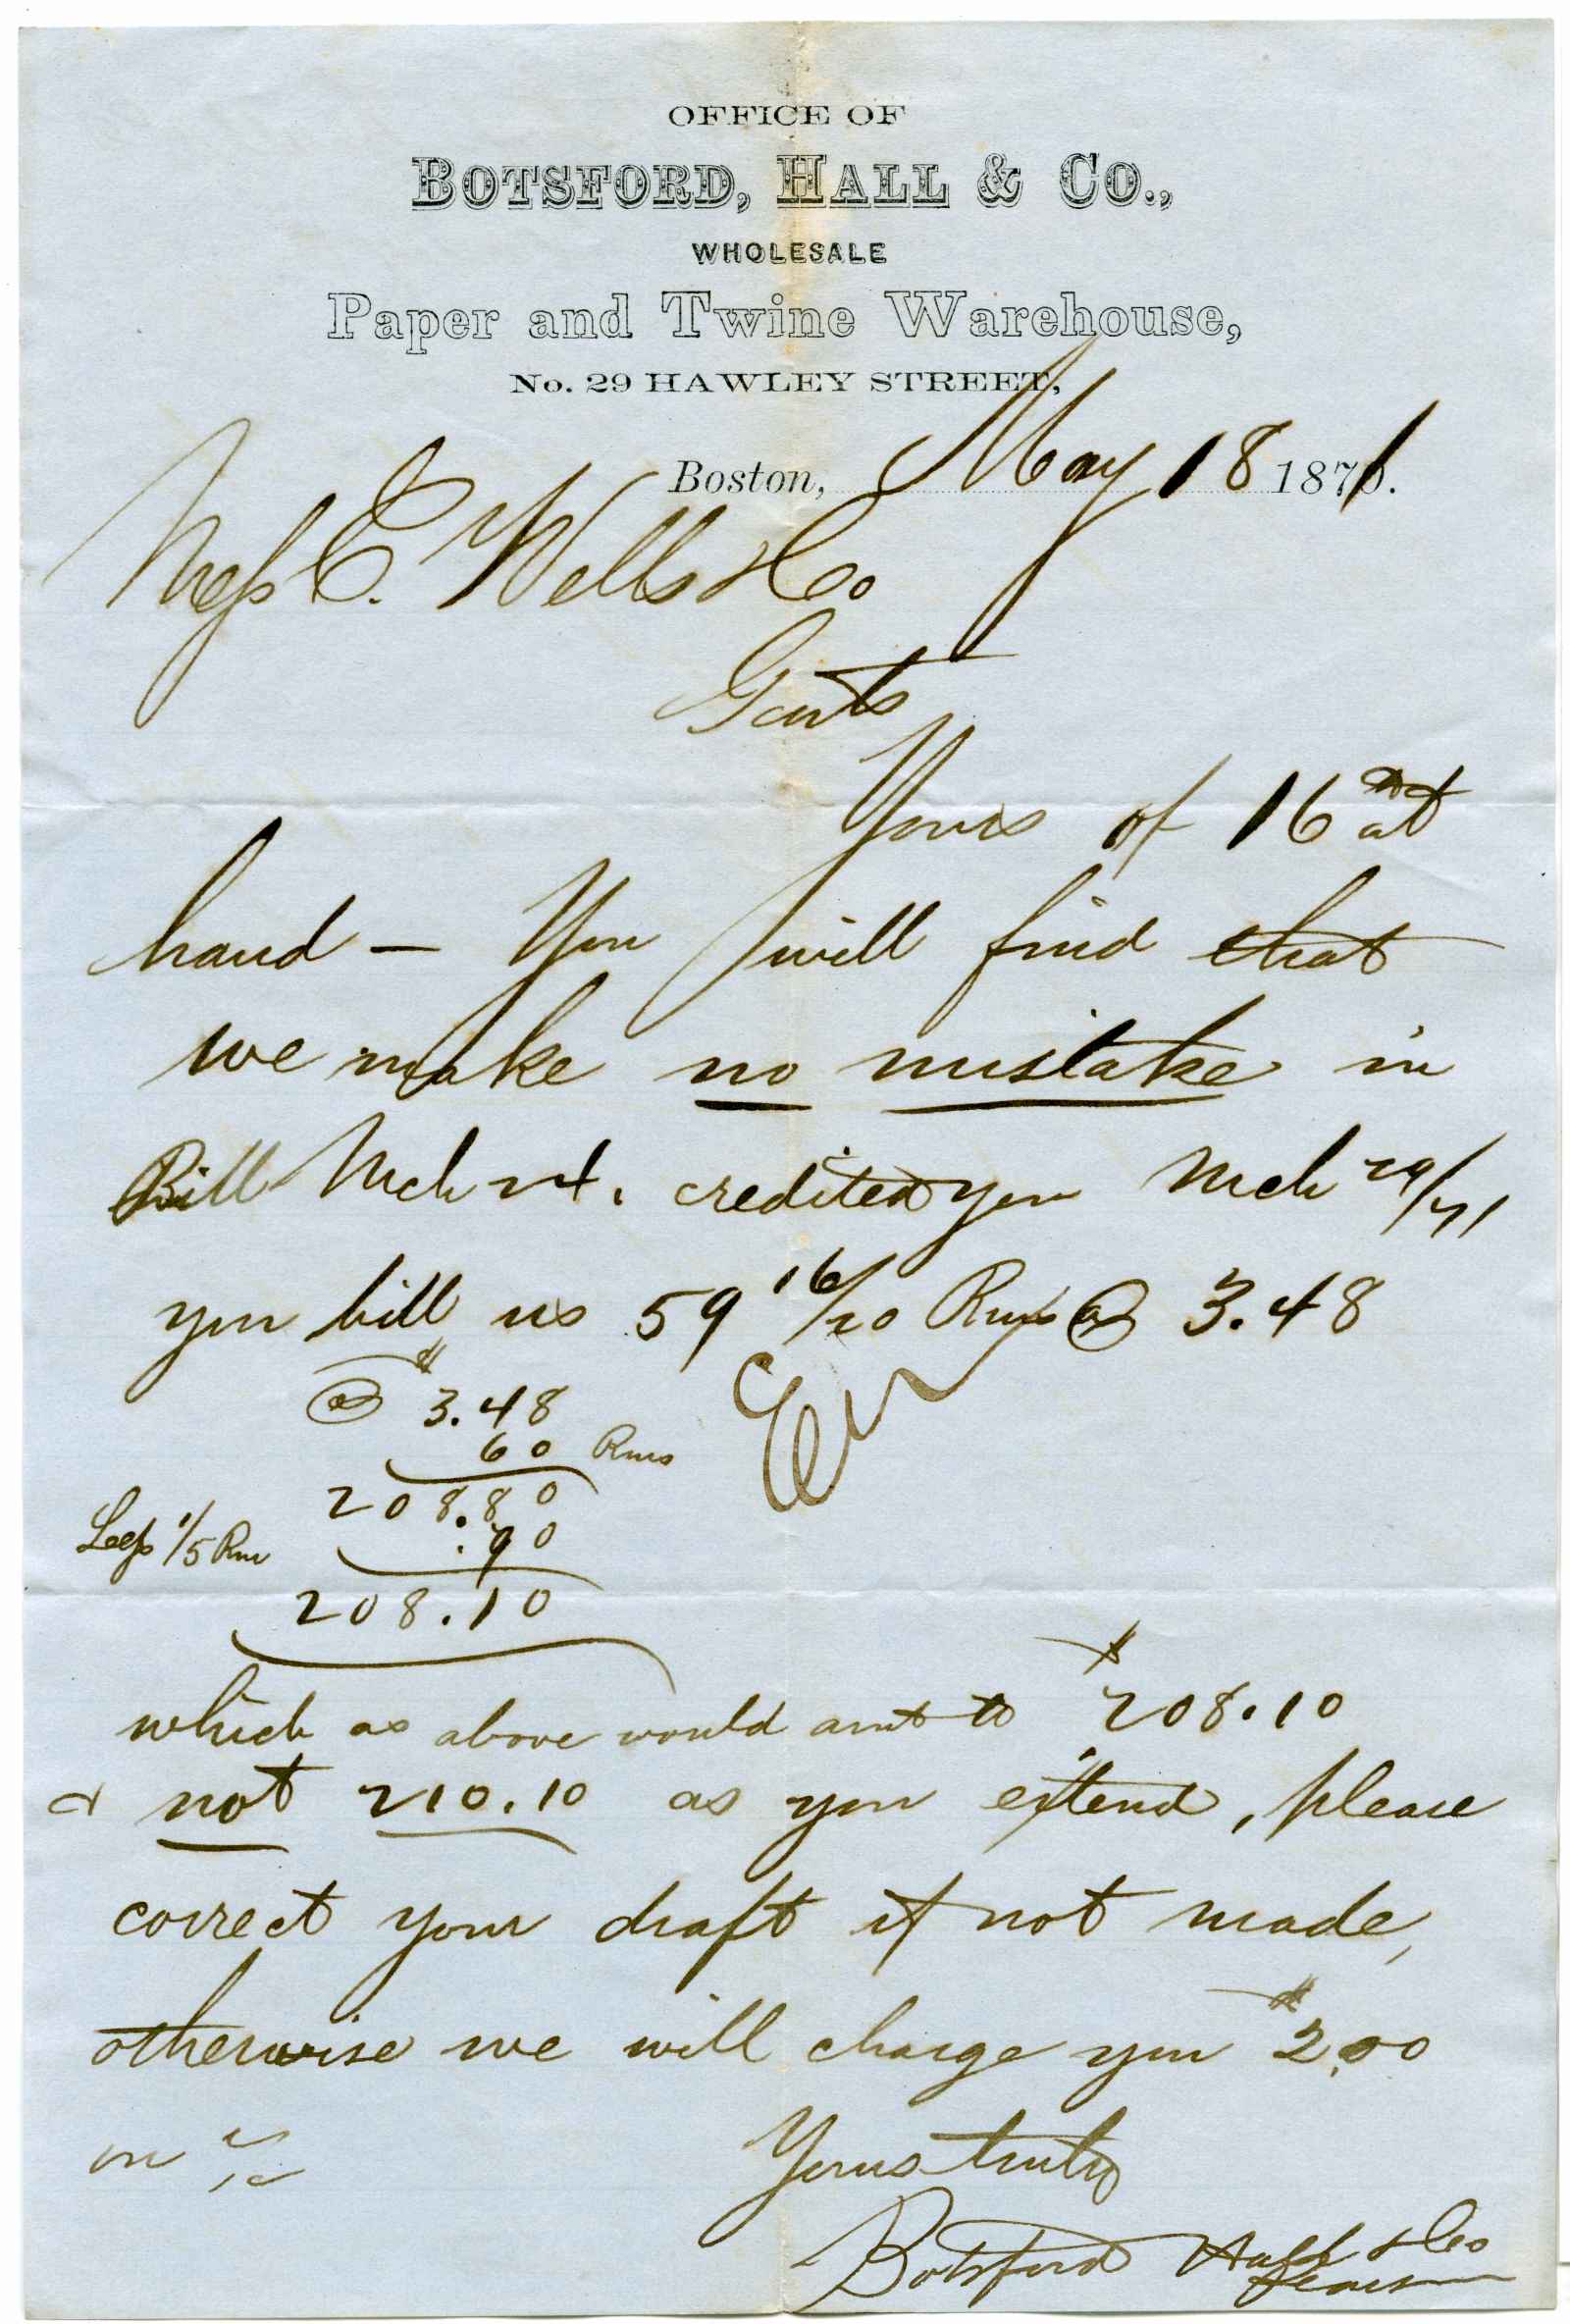 OFFICE OF
BOTSFORD, HALL & CO.,
WHOLESALE
Paper and Twine Warehouse,
No. 29 HAWLEY STREET,
Boston, May 18 1871.
Mess C. Wells & Co
Gents
Yours of 16 at
hand – You will find that
we make no mistake in
Bill Mch 24. credited you Mch 29/71
you bill us 59 16/20 Rms @ 3.48
@ $3.48
60 Rms
208.80
Less 1/5 Rm .90
208.10
which as above would amt to $208.10
& not 210.10 as you extend, please
correct your draft if not made,
otherwise we will charge you $2.00
on
Yours truly
Botsford Hall & Co